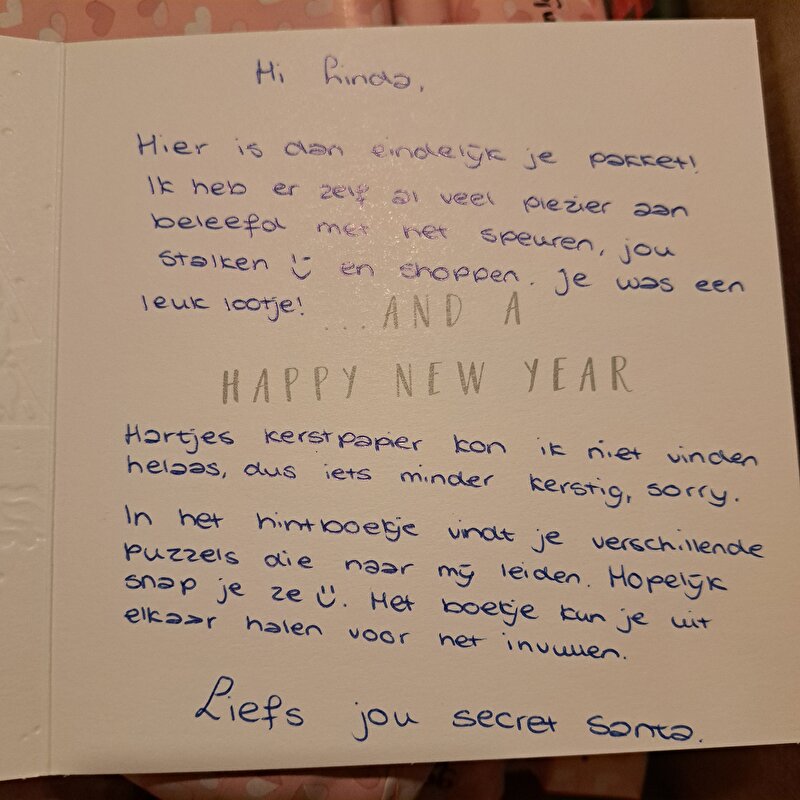 Hi Linda,
Hier is dan eindelijk je pakket!
Ik heb er zelf al veel plezier aan
beleefd met het speuren, jou
stalken :) en shoppen. Je was een
leuk lootje!
...AND A
HAPPY NEW YEAR
Hartjes kerstpapier kon ik niet vinden
helaas, dus iets minder kerstig, sorry.
In het hintboekje vindt je verschillende
puzzels die naar mij leiden. Hopelijk
snap je ze :). Het boekje kun je uit
elkaar halen voor het invullen.
Liefs jou secret santa.